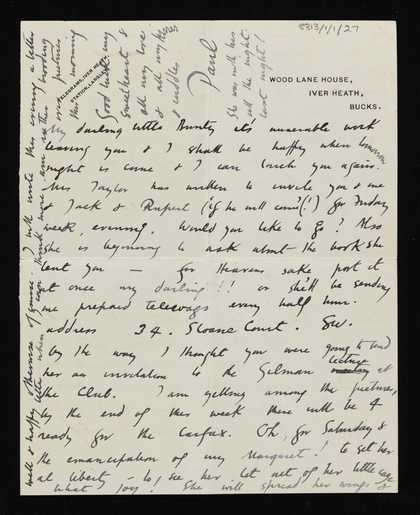 8313/1/1/27
TELEGRAMS, IVER HEATH.
STATION, LANGLEY
WOOD LANE HOUSE,
IVER HEATH,
BUCKS.
My darling little Bunty it's miserable work
leaving you & I shall be happy when tomorrow
night is come & I can touch you again.
Mrs Taylor has written to invite you & me
& Jack & Rupert (if he will come?!) for Friday
week, evening. Would you like to go? Also
she is beginning to ask about the book she
lent you — for Heavens sake post it
at once my darling!!! or she'll be sending
me prepaid telewags every half hour.
address 34. Sloane Court. S.W.
By the way I thought you were going to send
her an invitation to the Gilman lecture at
the Club. I am getting among the pictures,
by the end of this week there will be 4
ready for the Carfax. Oh, for Saturday &
the emancipation of my Margaret! to get her
at liberty — to see her let out of her little cage
what joy! She will spread her wings &
this evening a letter
this morning
Good luck my
sweetheart &
all my love
& all my
& cuddles
Paul
She was with her
all the night
last night!